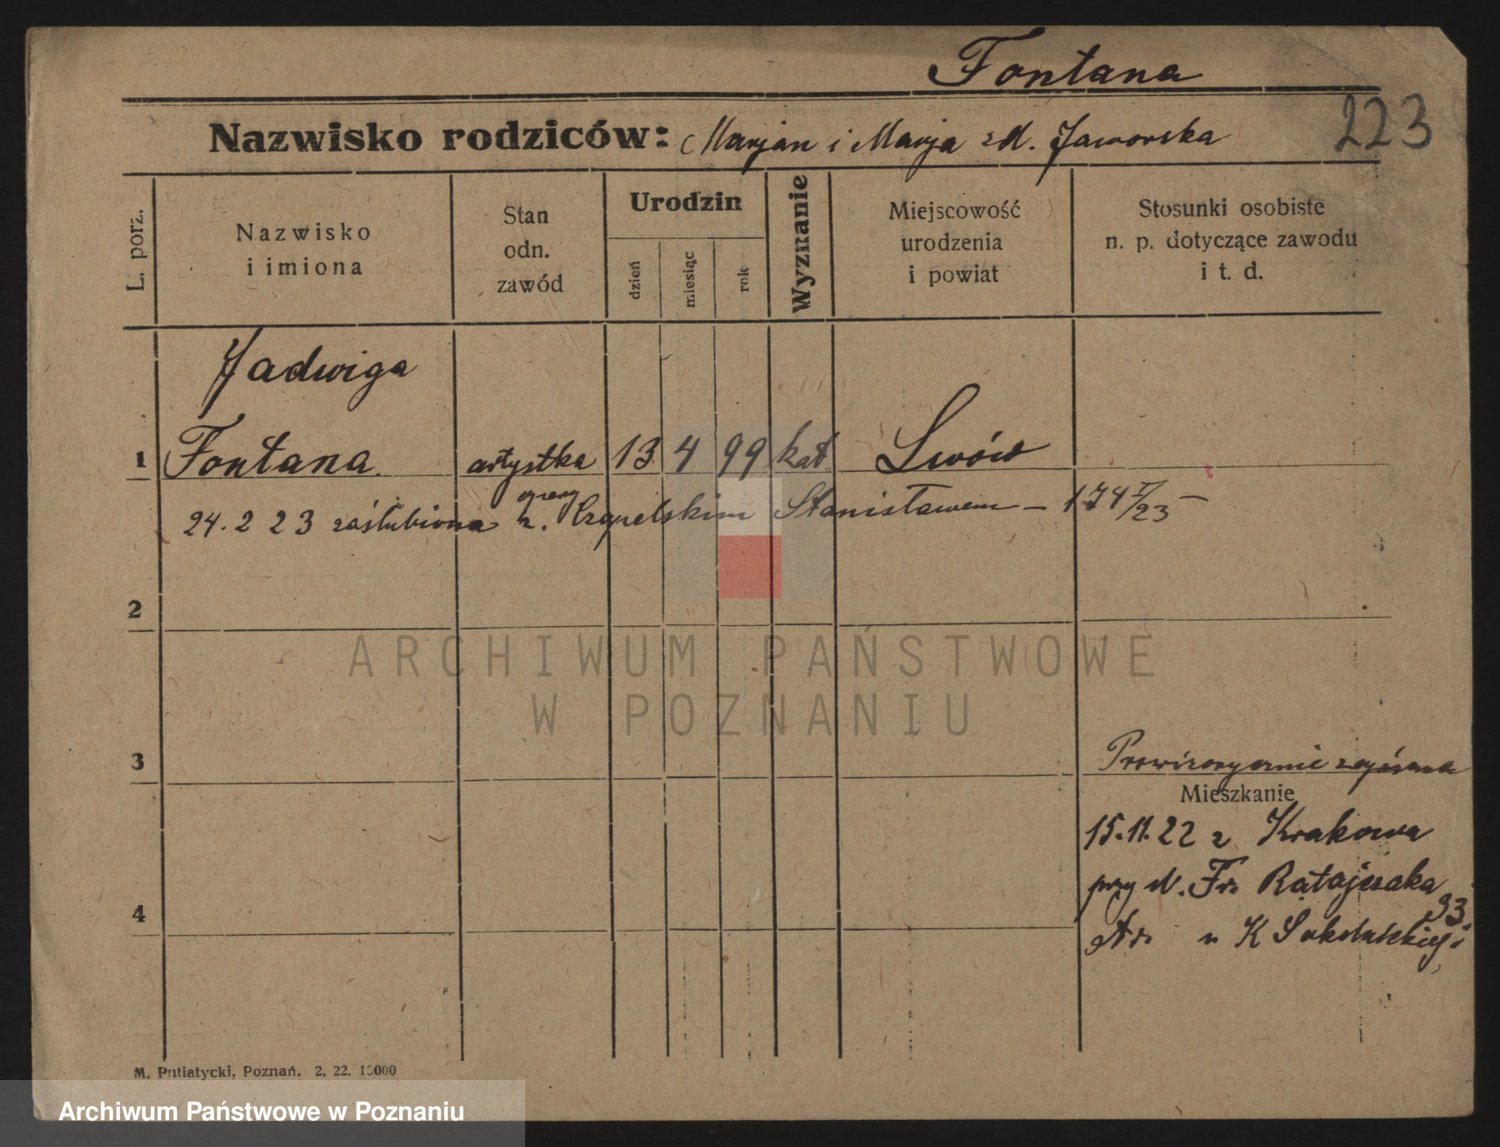 Fontana
223
Nazwisko rodziców: Marjan i Marja zd. Jaworska
L. porz.
Nazwisko
i imiona
Stan
odn.
zawód
Urodzin
dzień
miesiąc
rok
Wyznanie
Miejscowość
urodzenia
i powiat
Stosunki osobiste
n. p. dotyczące zawodu
i t. d.
Jadwiga
1 Fontana artystka 13 4 99 kat Lwów
opery
24. 2 23 zaślubiona z. Czapelskim Stanisławem — 174 I/23 —
2
3
Prowizorycznie zapisana
Mieszkanie
15.11.22 z Krakowa
przy ul. Fr. Ratajczaka
33
u K Sokolnickiego
4
M. Putiatycki, Poznań. 2. 22. 10000
ARCHIWUM PAŃSTWOWE
W POZNANIU
Archiwum Państwowe w Poznaniu